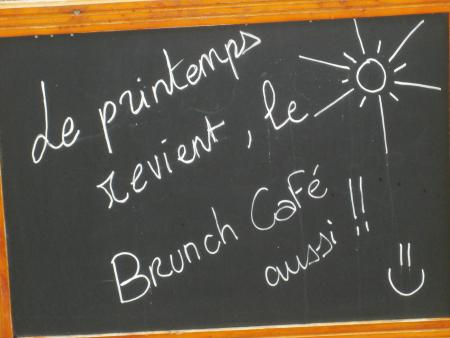 Le printemps
revient, le
Brunch Café
aussi !!